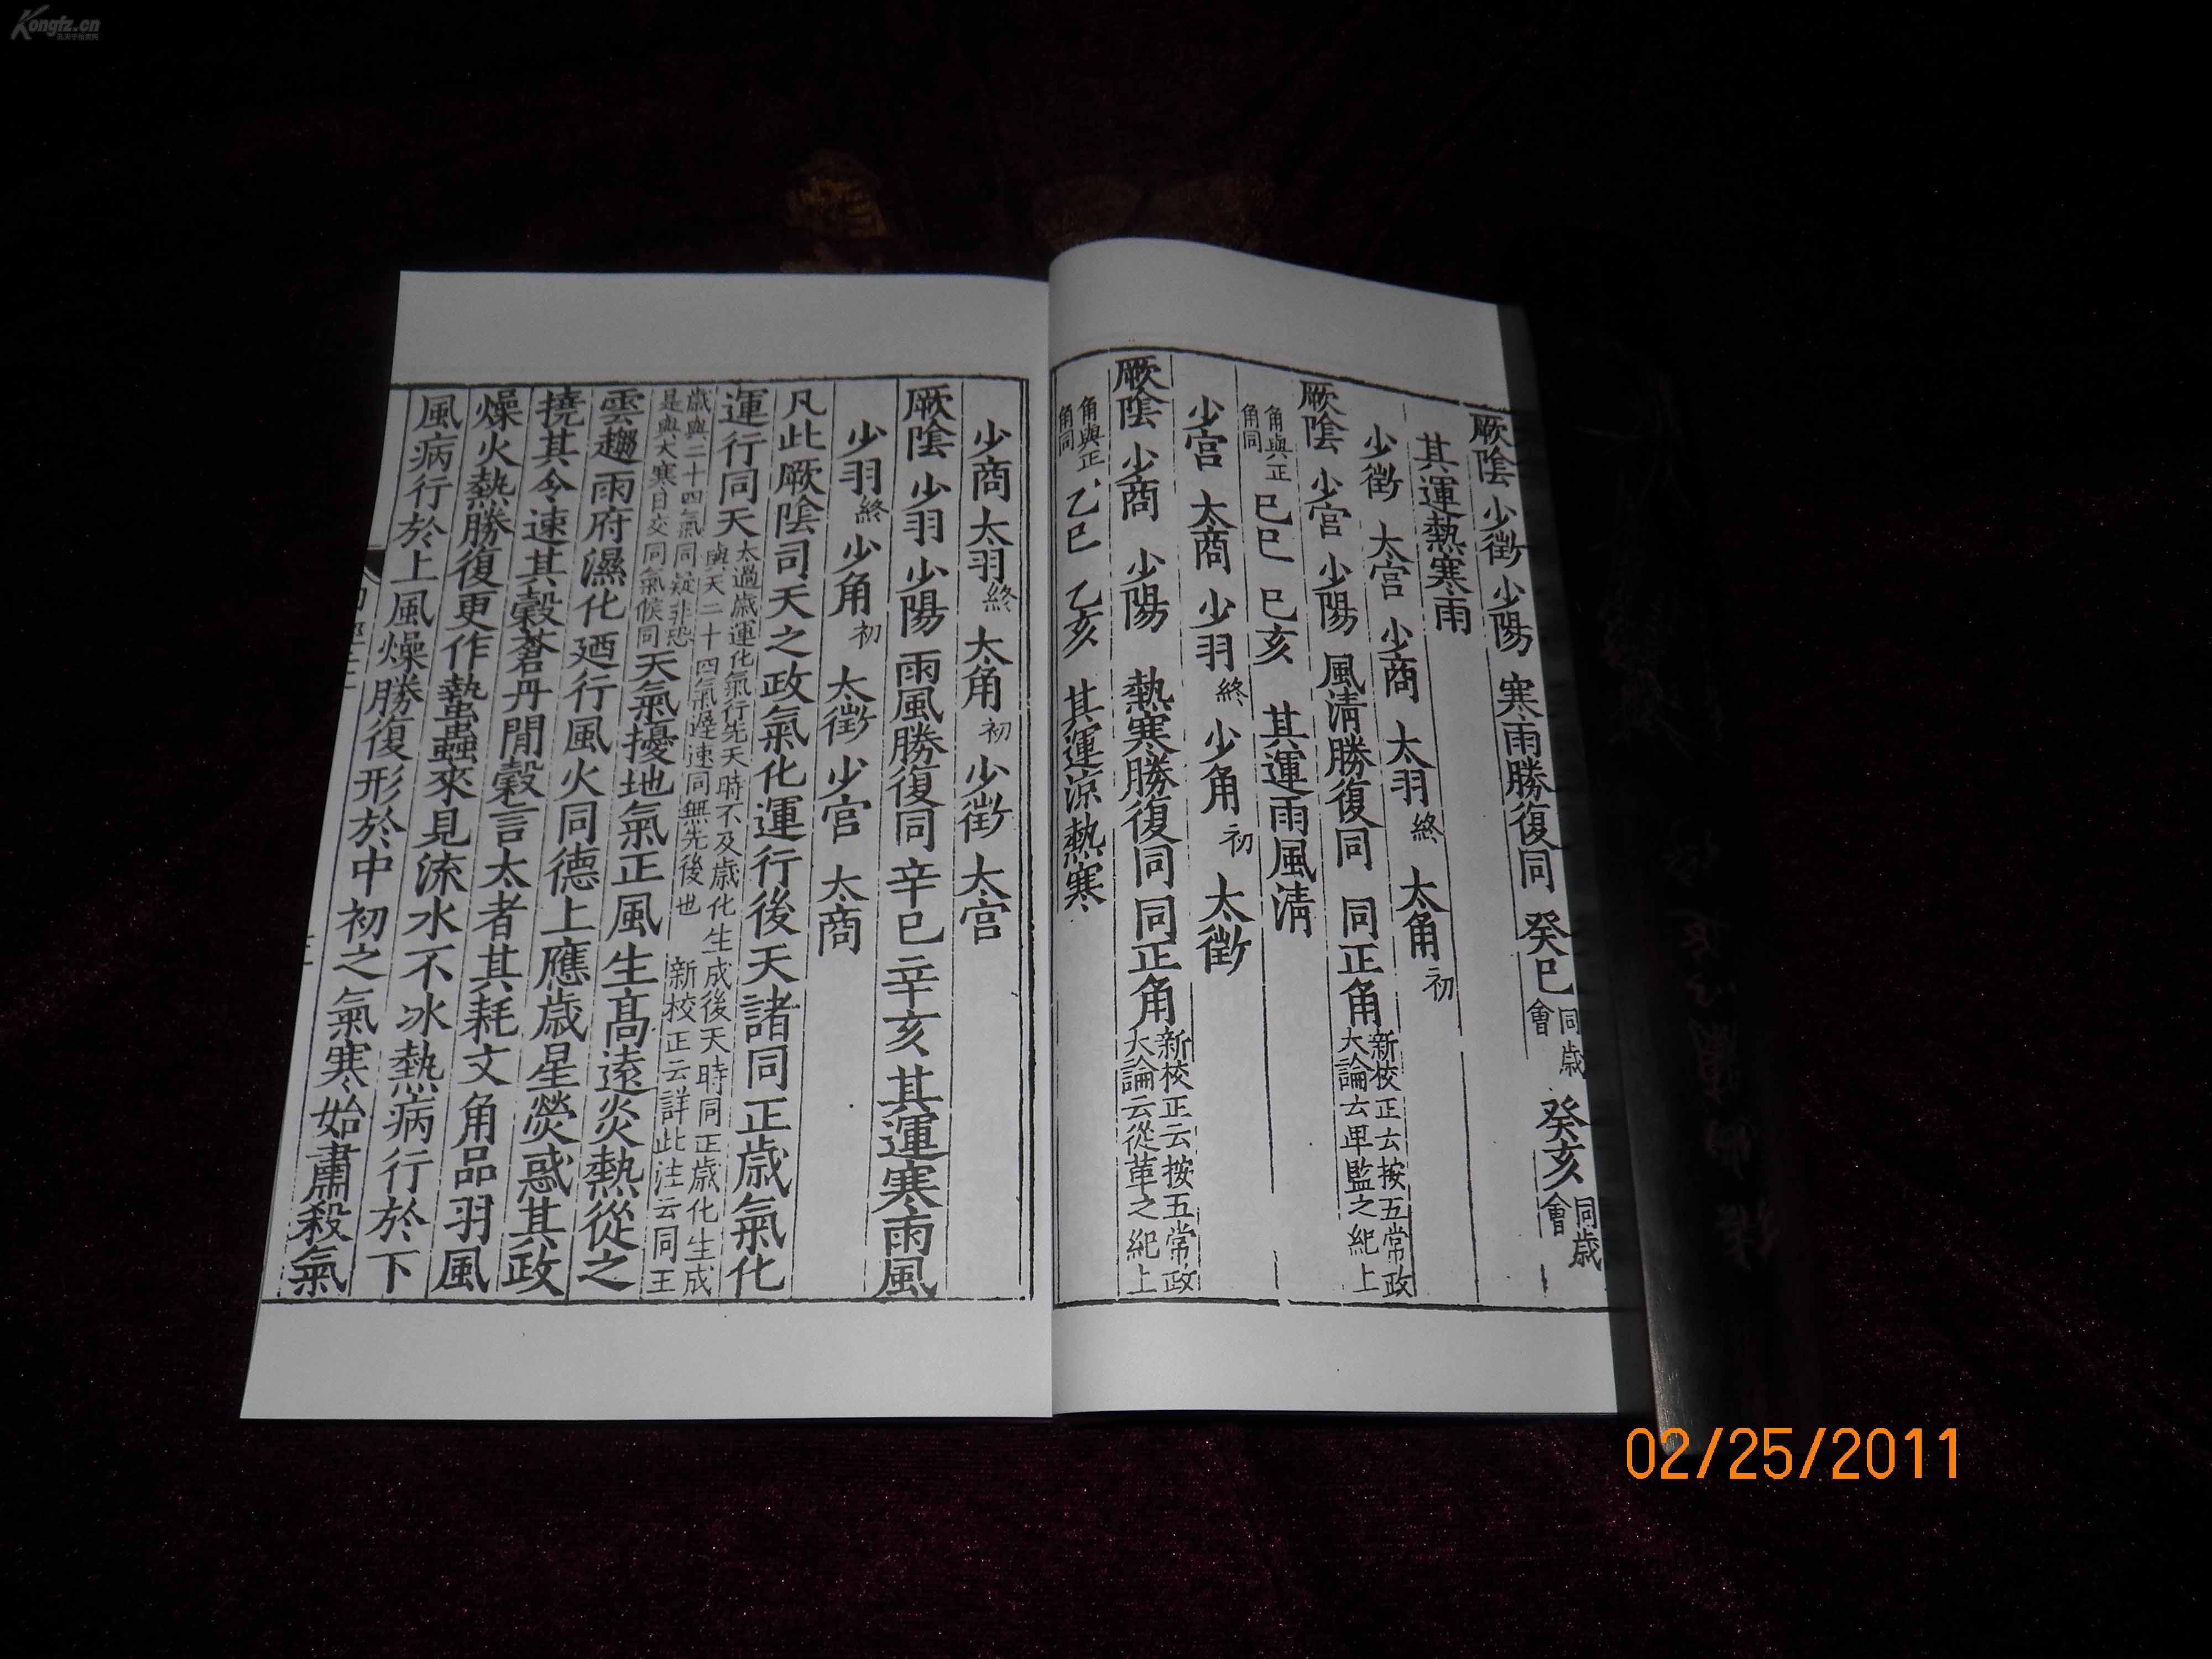 Kongfz.cn
厥陰 少徵 少陽 寒雨勝復同 癸巳同歲會 癸亥同歲會
其運熱寒雨
少徵 太宮 少商 太羽終 太角初
厥陰 少宮 少陽 風清勝復同 同正角新校正云按五常政大論云卑監之紀上
角與正角同 己巳 己亥 其運雨風清
少宮 太商 少羽終 少角初 太徵
厥陰 少商 少陽 熱寒勝復同 同正角新校正云按五常政大論云從革之紀上
角與正角同 乙巳 乙亥 其運涼熱寒
少商 太羽終 太角初 少徵 太宮
厥陰 少羽 少陽 雨風勝復同 辛巳 辛亥 其運寒雨風
少羽終 少角初 太徵 少宮 太商
凡此厥陰司天之政氣化運行後天諸同正歲氣化
運行同天太過歲運化氣行先天時不及歲化生成後天時同正歲化生成與天二十四氣遲速同無先後也 新校正云詳此注云同王
歲與二十四氣同疑非恐是與大寒日交同氣候同天氣擾地氣正風生高遠炎熱從之
雲趨雨府濕化廼行風火同德上應歲星熒惑其政
撓其令速其穀蒼丹閒穀言太者其耗文角品羽風
燥火熱勝復更作蟄蟲來見流水不冰熱病行於下
風病行於上風燥勝復形於中初之氣寒始肅殺氣
02/25/2011